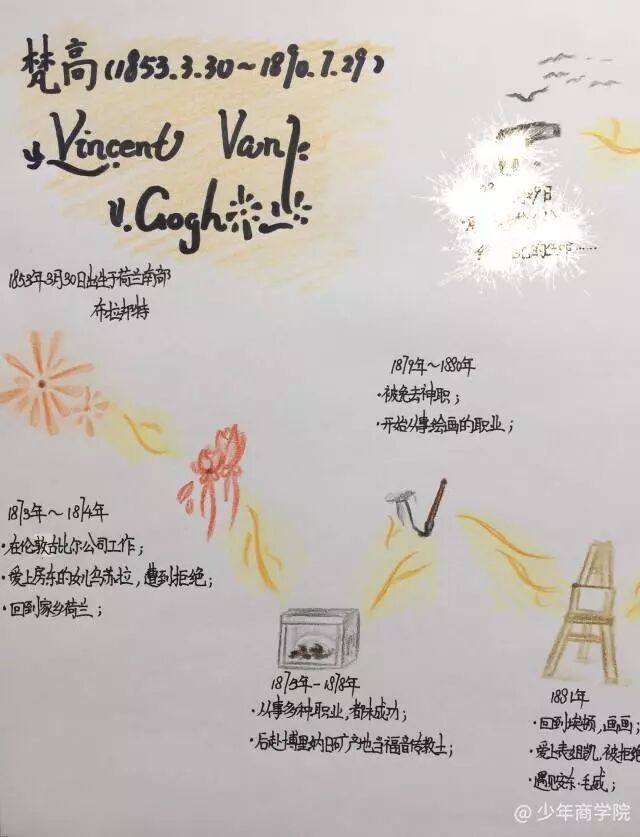 梵高(1853.3.30~1890.7.29)
Vincent Van
V.Gogh
1853年3月30日出生于荷兰南部
布拉邦特
1879年~1880年
·被免去神职;
·开始从事绘画的职业;
1873年~1874年
·在伦敦古比尔公司工作;
·爱上房东的女儿乌苏拉,遭到拒绝;
·回到家乡荷兰;
1875年-1878年
·从事多种职业,都未成功;
·后赴博里纳日矿产地当福音传教士;
1881年
·回到埃顿,画画;
·爱上表姐凯,被拒绝
·遇见安东·毛威;
@少年商学院